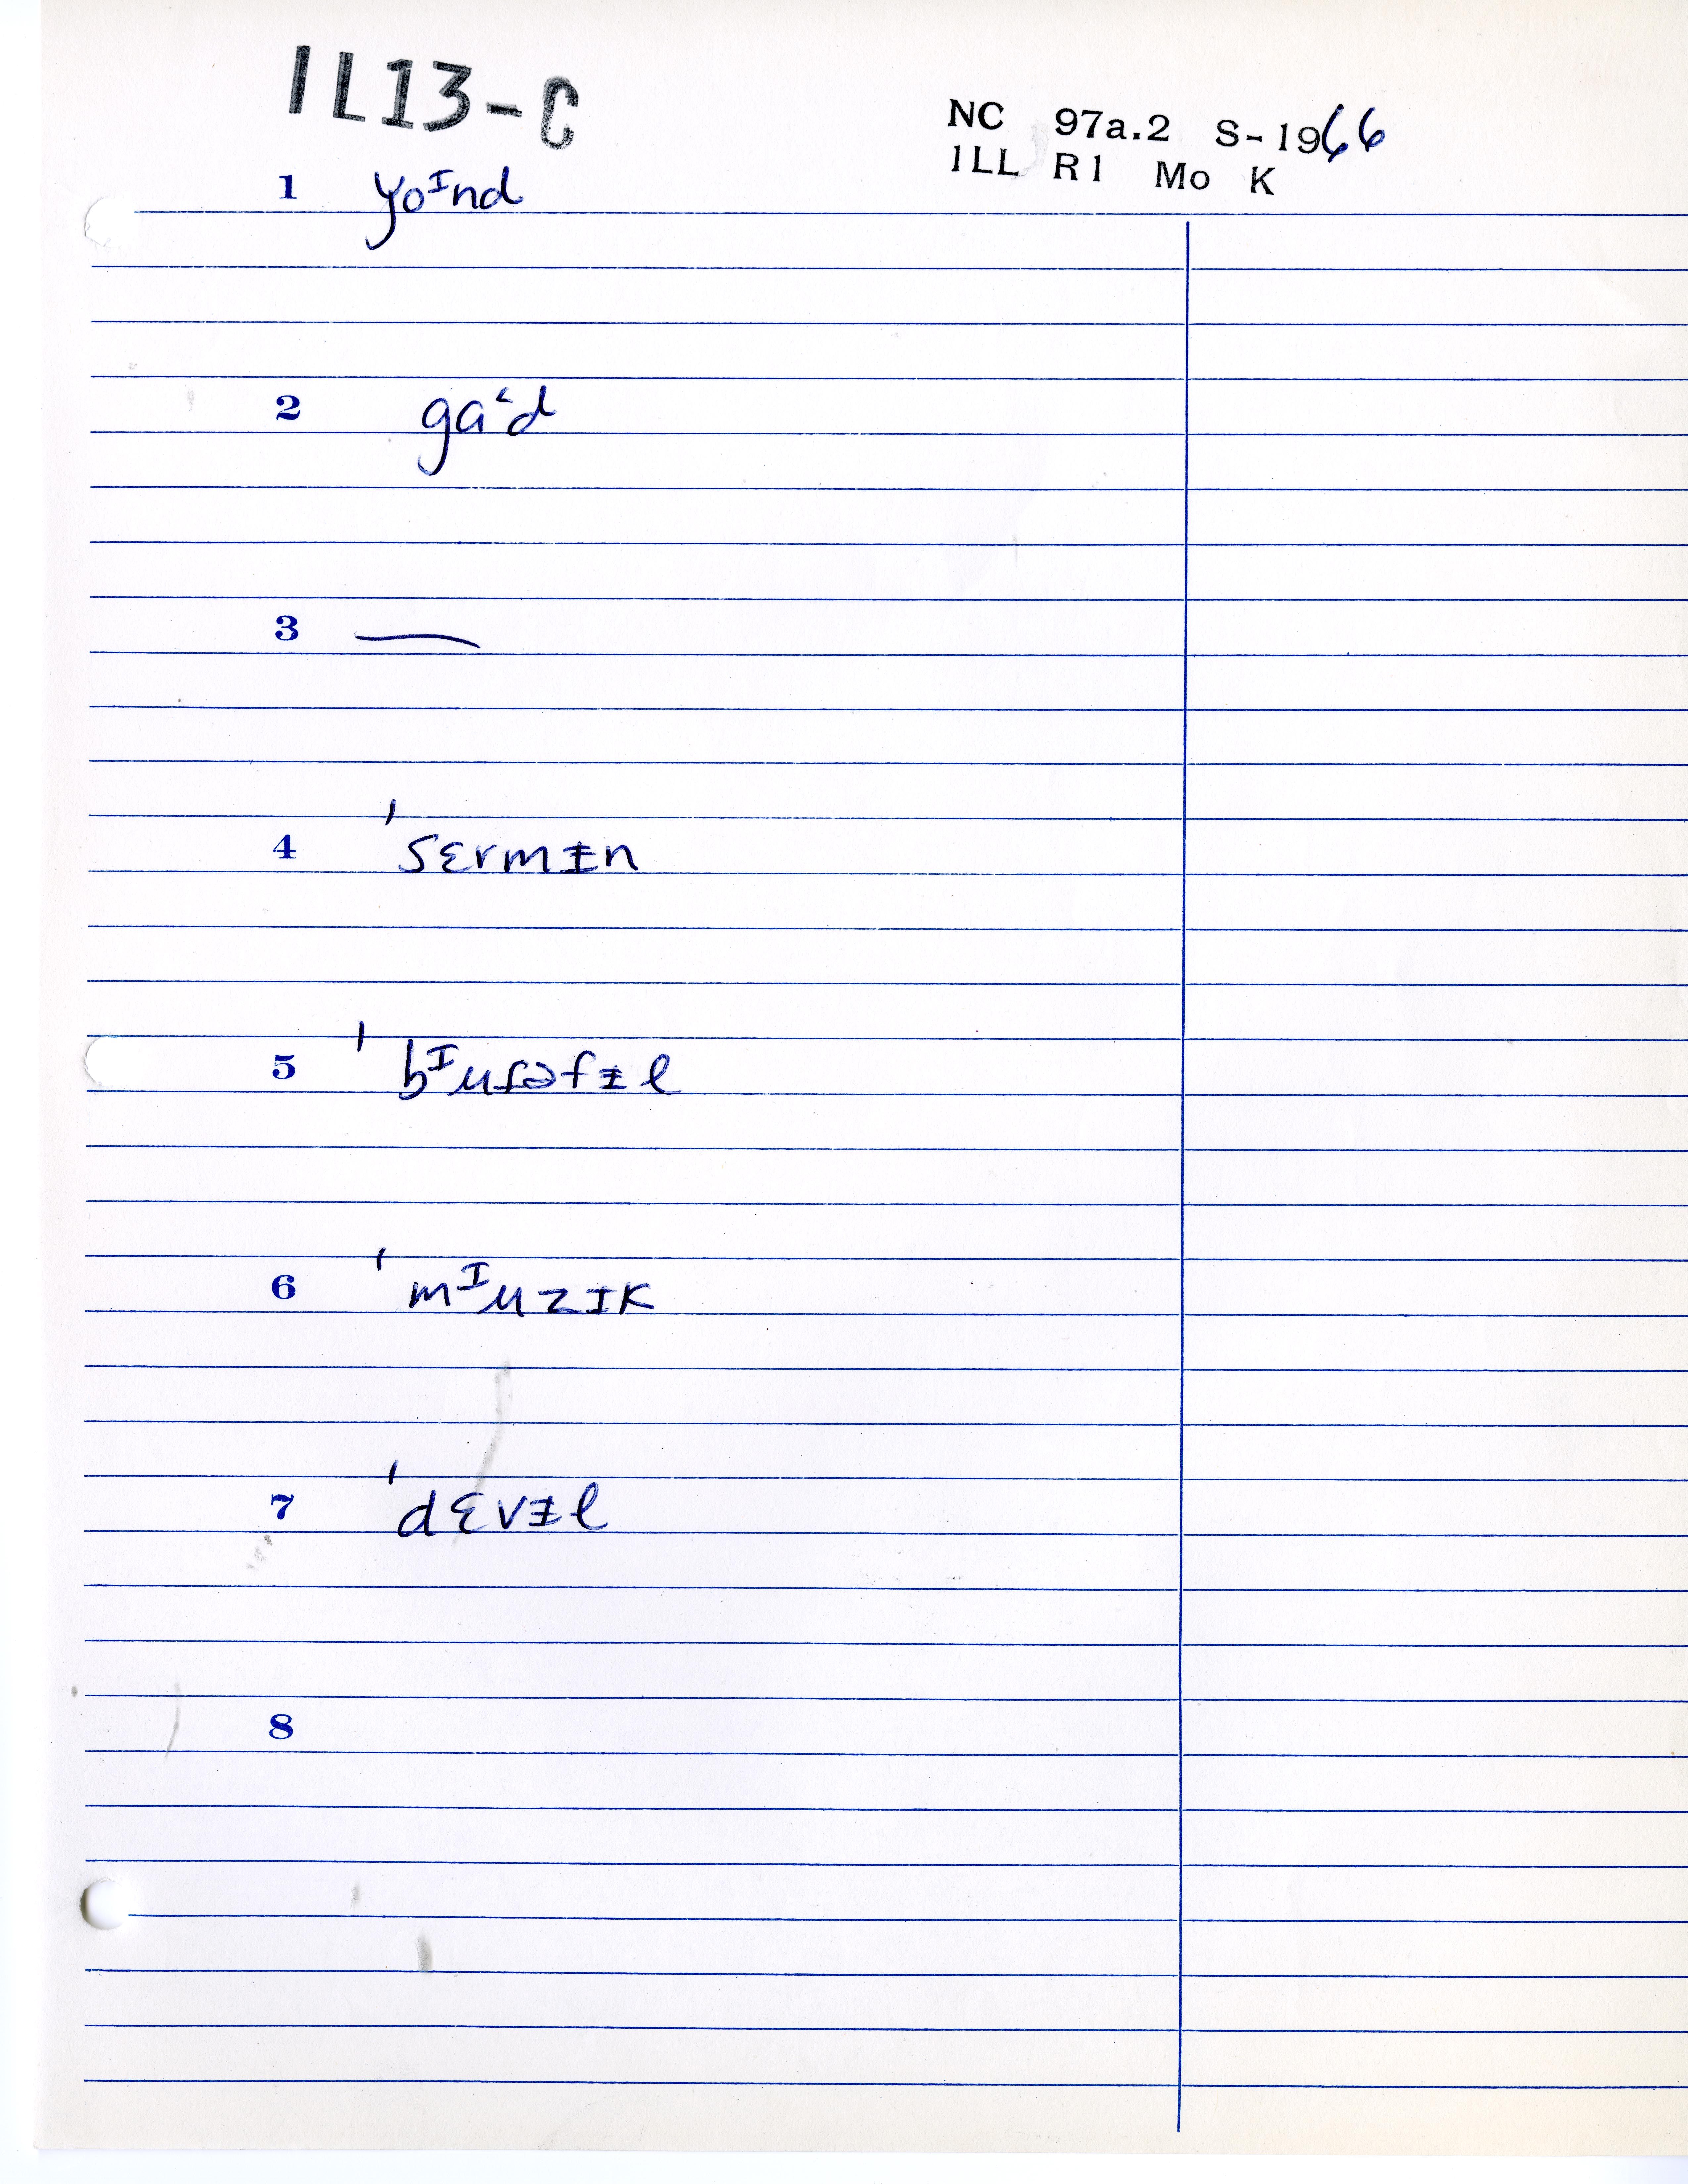 IL13-C
NC 97a.2 S-1966
ILL R1 Mo K
1 ɣoᶦnd
2 gaʿd
3 —
4 ˈsɛrmɪ̵n
5 ˈbᶦuɾəfɪ̵l
6 ˈmᶦuzɪk
7 ˈdɛvɪ̵l
8